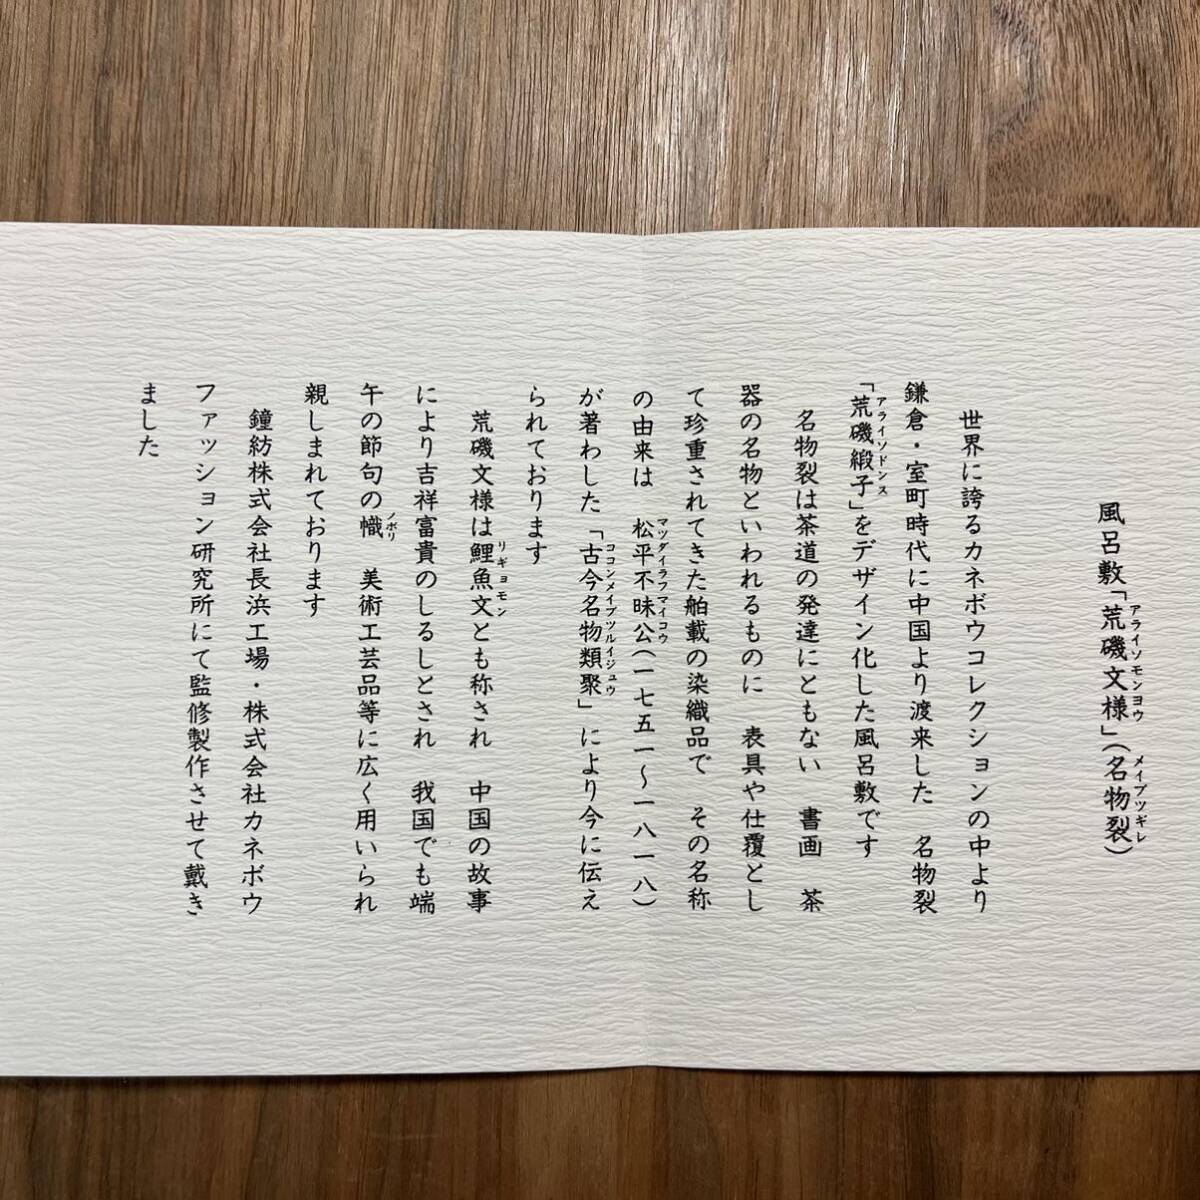 風呂敷「荒磯文様」（名物裂）
アライソモンヨウ
メイブツギレ
世界に誇るカネボウコレクションの中より
鎌倉・室町時代に中国より渡来した　名物裂
「荒磯緞子」をデザイン化した風呂敷です
アライソドンス
名物裂は茶道の発達にともない　書画　茶
器の名物といわれるものに　表具や仕覆とし
て珍重されてきた舶載の染織品で　その名称
の由来は　松平不昧公（一七五一～一八一八）
マツダイラフマイコウ
が著わした「古今名物類聚」により今に伝え
ココンメイブツルイジュウ
られております
荒磯文様は鯉魚文とも称され　中国の故事
リギョモン
により吉祥富貴のしるしとされ　我国でも端
午の節句の幟　美術工芸品等に広く用いられ
ノボリ
親しまれております
鐘紡株式会社長浜工場・株式会社カネボウ
ファッション研究所にて監修製作させて戴き
ました